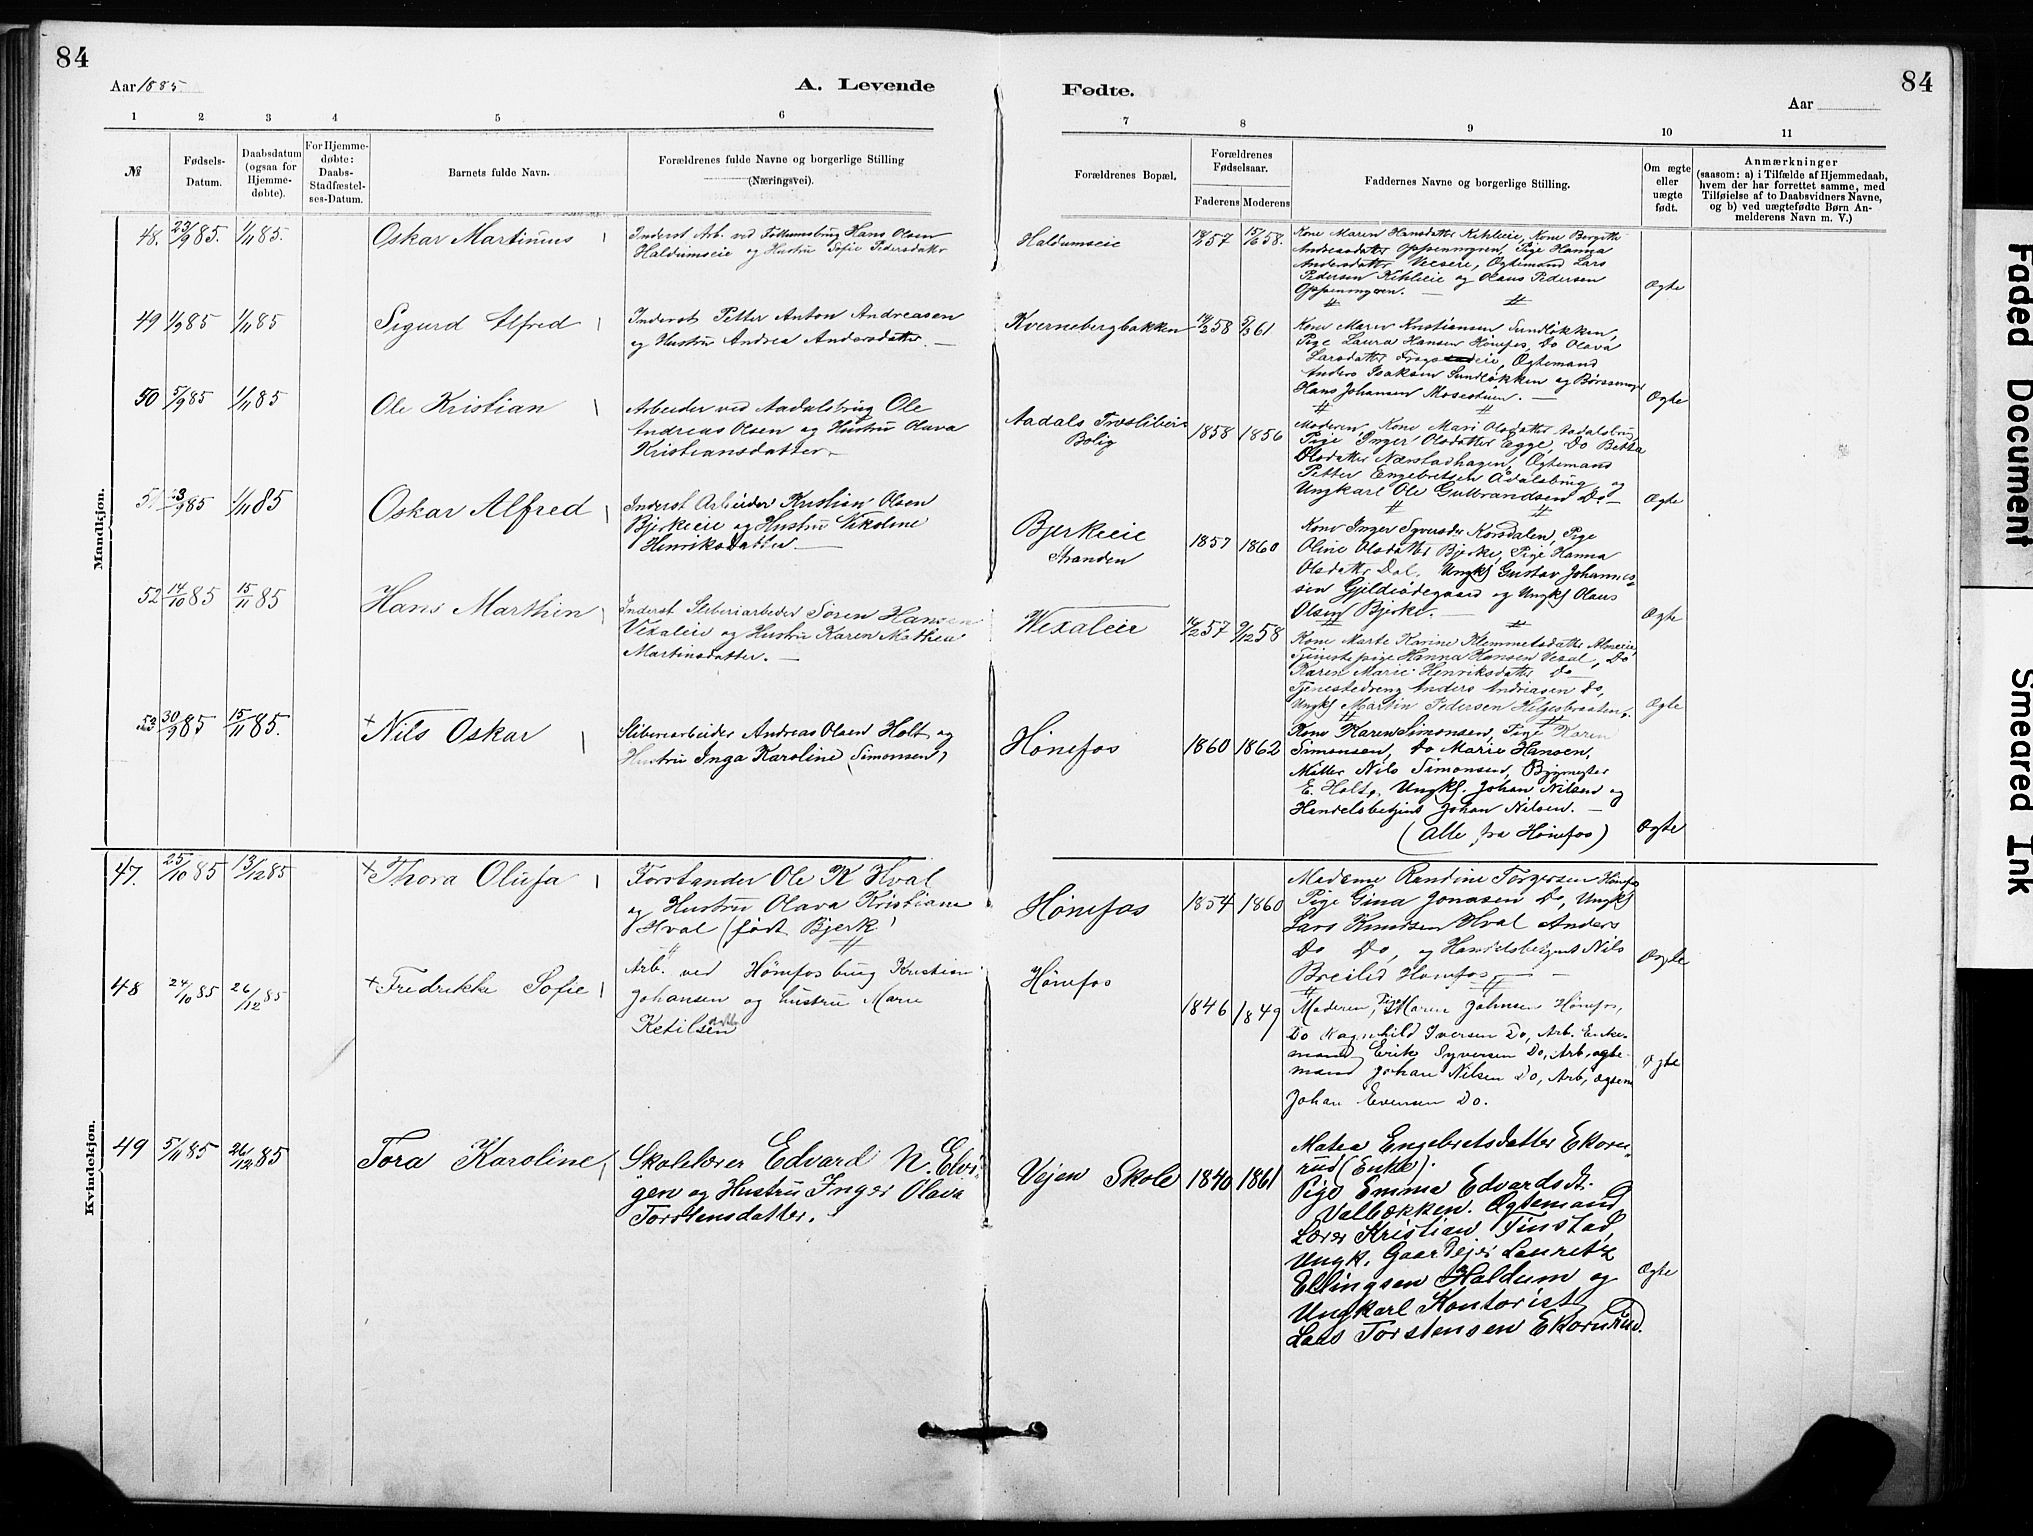 84
84
Aar 1885
A. Levende
Fødte.
Aar
1 2 3 4 5 6
7 8 9 10 11
№
Fødsels-
Datum.
Daabsdatum
(ogsaa for
Hjemme-
døbte).
For Hjemme-
døbte:
Daabs-
Stadfæstel-
ses-Datum.
Barnets fulde Navn.
Forældrenes fulde Navne og borgerlige Stilling
(Næringsvei).
Forældrenes Bopæl.
Forældrenes
Fødselsaar.
Faderens Moderens
Faddernes Navne og borgerlige Stilling.
Om ægte
eller
uægte
født.
Anmærkninger
(saasom: a) i Tilfælde af Hjemmedaab,
hvem der har forrettet samme, med
Tilføielse af to Daabsvidners Navne,
og b) ved uægtefødte Børn An-
melderens Navn m. V.)
Mandkjøn.
48. 23/9 85. 1/11 85.
Oskar Martinius
Inderst Arb. ved Follumsbrug Hans Olsen
Haldumseie og Hustru Sofie Pedersdatter
Haldumseie
57 15/6 58.
Kone Maren Hansdatter Kihleie, Kone Borgitte
Andreasdatter Oppenmyren, Pige Hanna
Andersdatter Veseie, Ægtemand Lars
Pedersen Kihleie og Olaus Pedersen
Oppenmyren. —
Ægte
49 1/9 85 1/11 85
Sigurd Alfred
Inderst Petter Anton Andreasen
og Hustru Andrea Andersdatter. —
Kvernebergbakken
58 5/3 61
Kone Maren Kristiansen Sundløkken,
Pige Laura Hansen Hønefos, Do Olava
Larsdatter Frogs eie, Ægtemand
Anders Isaksen Sundløkken og Børssemager
Hans Johansen Mosestuen. —
Ægte
50 5/9 85 1/11 85
Ole Kristian
Arbeider ved Aadalsbrug Ole
Andreas Olsen og Hustru Olava
Kristiansdatter
Aadals Træsliberi
Bolig
1858 1856
Moderen, Kone Mari Olsdatter Aadalsbrug
Pige Inger Olsdatter Egge, Do Betta
Olsdatter Nærstadhagen, Ægtemand
Petter Engebretsen Ådalsbrug og
Ungkarl Ole Gulbrandsen Do —
Ægte
51 23/9 85 1/11 85
Oskar Alfred
Inderst Arbeider Kristian Olsen
Bjerkeeie og Hustru Nikoline
Henriksdatter. —
Bjerkeeie
Stranden
1857 1860
Kone Inger Syversdtr Korsdalen, Pige
Oline Olsdatter Bjerke, Pige Hanna
Olsdatter Dal, Ungk. Gustav Johannes-
sen Gjildeødegaard og Ungk. Olaus
Olsen Bjerke. —
Ægte
52 14/10 85 15/11 85
Hans Marthin
Inderst Sliberiarbeider Søren Hansen
Vexaleie og Hustru Karen Mathea
Martinsdatter. —
Wexaleie
57 9/12 58
Kone Marte Karine Klemmetsdatter Almeeie,
Tjenestepige Hanna Hansen Vexal, Do
Karen Marie Henriksdatter Do
Tjenestedreng Anders Andreasen Do,
Ungk. Martin Pedersen Helgesbraaten,
Ægte
53 30/9 85 15/11 85.
+ Nils Oskar
Sliberiarbeider Andreas Olsen Holt og
Hustru Inga Karoline (Simonsen)
Hønefos
1860 1862
Kone Karen Simonsen, Pige Karen
Simonsen, Do Marie Hansen,
Møller Nils Simonsen, Bygmester
E. Holt, Ungk. Johan Nilsen og
Handelsbetjent Johan Nilsen. —
(Alle fra Hønefos)
Ægte
Kvindekjøn.
47. 25/10 85 13/12 85
+ Thora Olufa
Forstander Ole K Hval
og Hustru Olava Kristiane
Hval (født Bjerk)
Hønefos
1854 1860
Madame Randine Torgersen Hønefos
Pige Gina Jonasen Do, Ungk.
Lars Knudsen Hval Anders
Do Do, og Handelsbetjent Nils
Breilid Hønefos. —
Ægte
48 24/10 85 26/12 85
+ Fredrikke Sofie
Arb. ved Hønefos brug Kristian
Johansen og hustru Marie
Ketilsen
Hønefos
1846 1849
Moderen, Pige Maren Johnsen Hønefos,
Do Ragnhild Iversen Do, Arb. Enke-
mand Erik Syversen Do, Arb. ægte-
mand Johan Nilsen Do, Arb, ægtem
Johan Evensen Do.
Ægte
49 5/11 85 26/12 85
Tora Karoline
Skolelærer Edvard N. Elvi-
gen og Hustru Inger Olava
Torstensdatter.
Vejen Skole
1840 1861
Matea Engebretsdatter Ekorn-
rud (Enke).
Pige Emma Edvardsdt.
Valbækken. Ægtemand
Lærer Kristian Finstad,
Ungk. Gaardejer Lauritz
Ellingsen Haldum og
Ungkarl Kontorist
Lars Torstensen Ekornrud.
Ægte
Faded Document
Smeared Ink